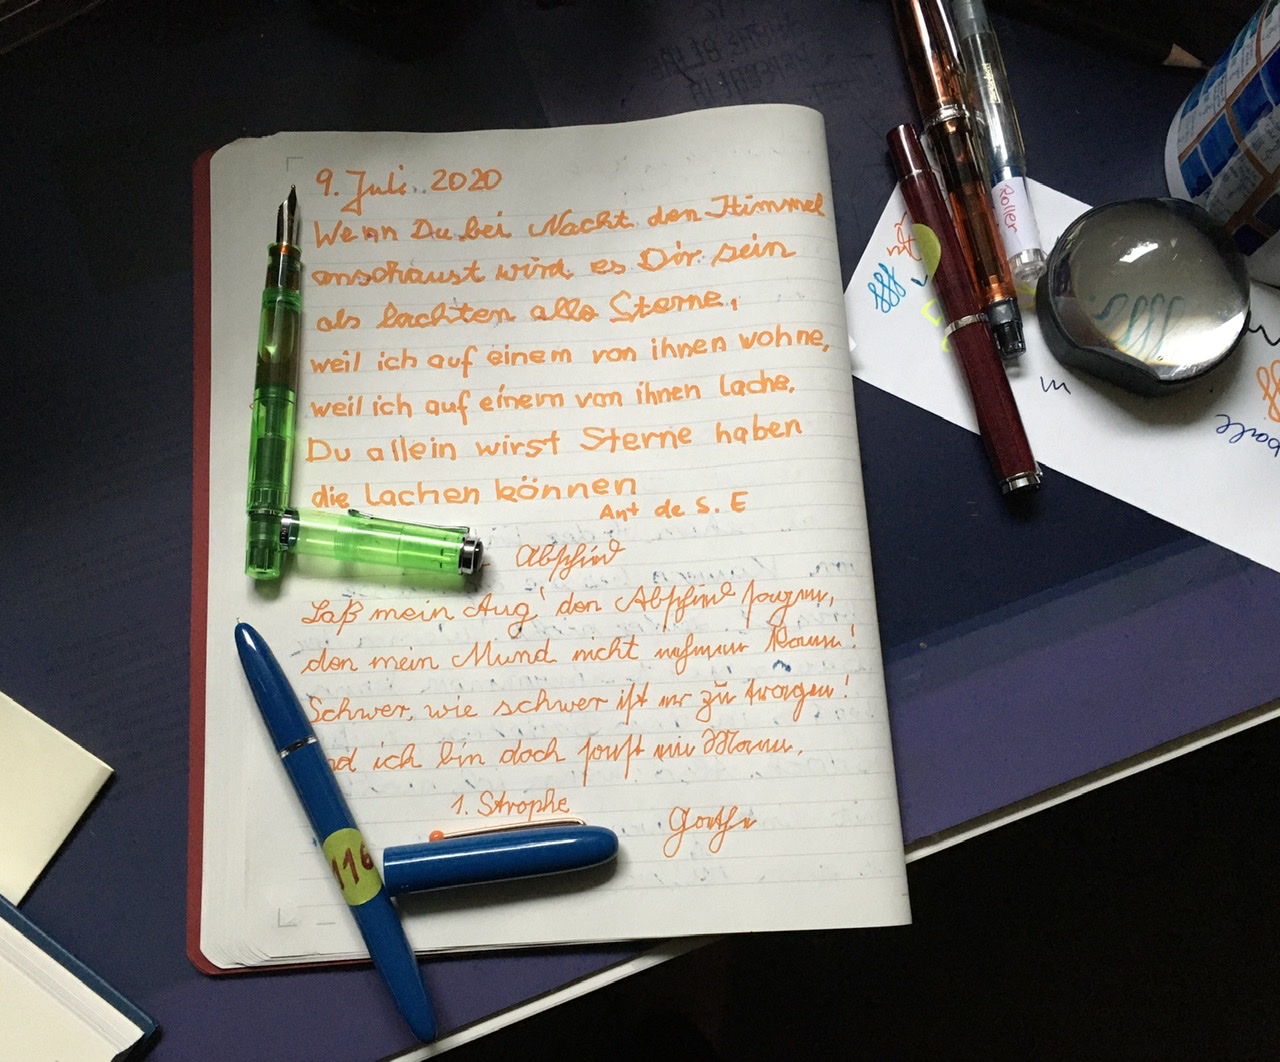 9. Juli 2020
Wenn Du bei Nacht den Himmel
anschaust wird es Dir sein
als lachten alle Sterne,
weil ich auf einem von ihnen wohne,
weil ich auf einem von ihnen lache.
Du allein wirst Sterne haben
die lachen können
Ant de S. E
Abschied
Laß mein Aug' den Abschied sagen,
den mein Mund nicht nehmen kann!
Schwer, wie schwer ist er zu tragen!
nd ich bin doch sonst ein Mann.
1. Strophe
Goethe
116
Roller
fff
m